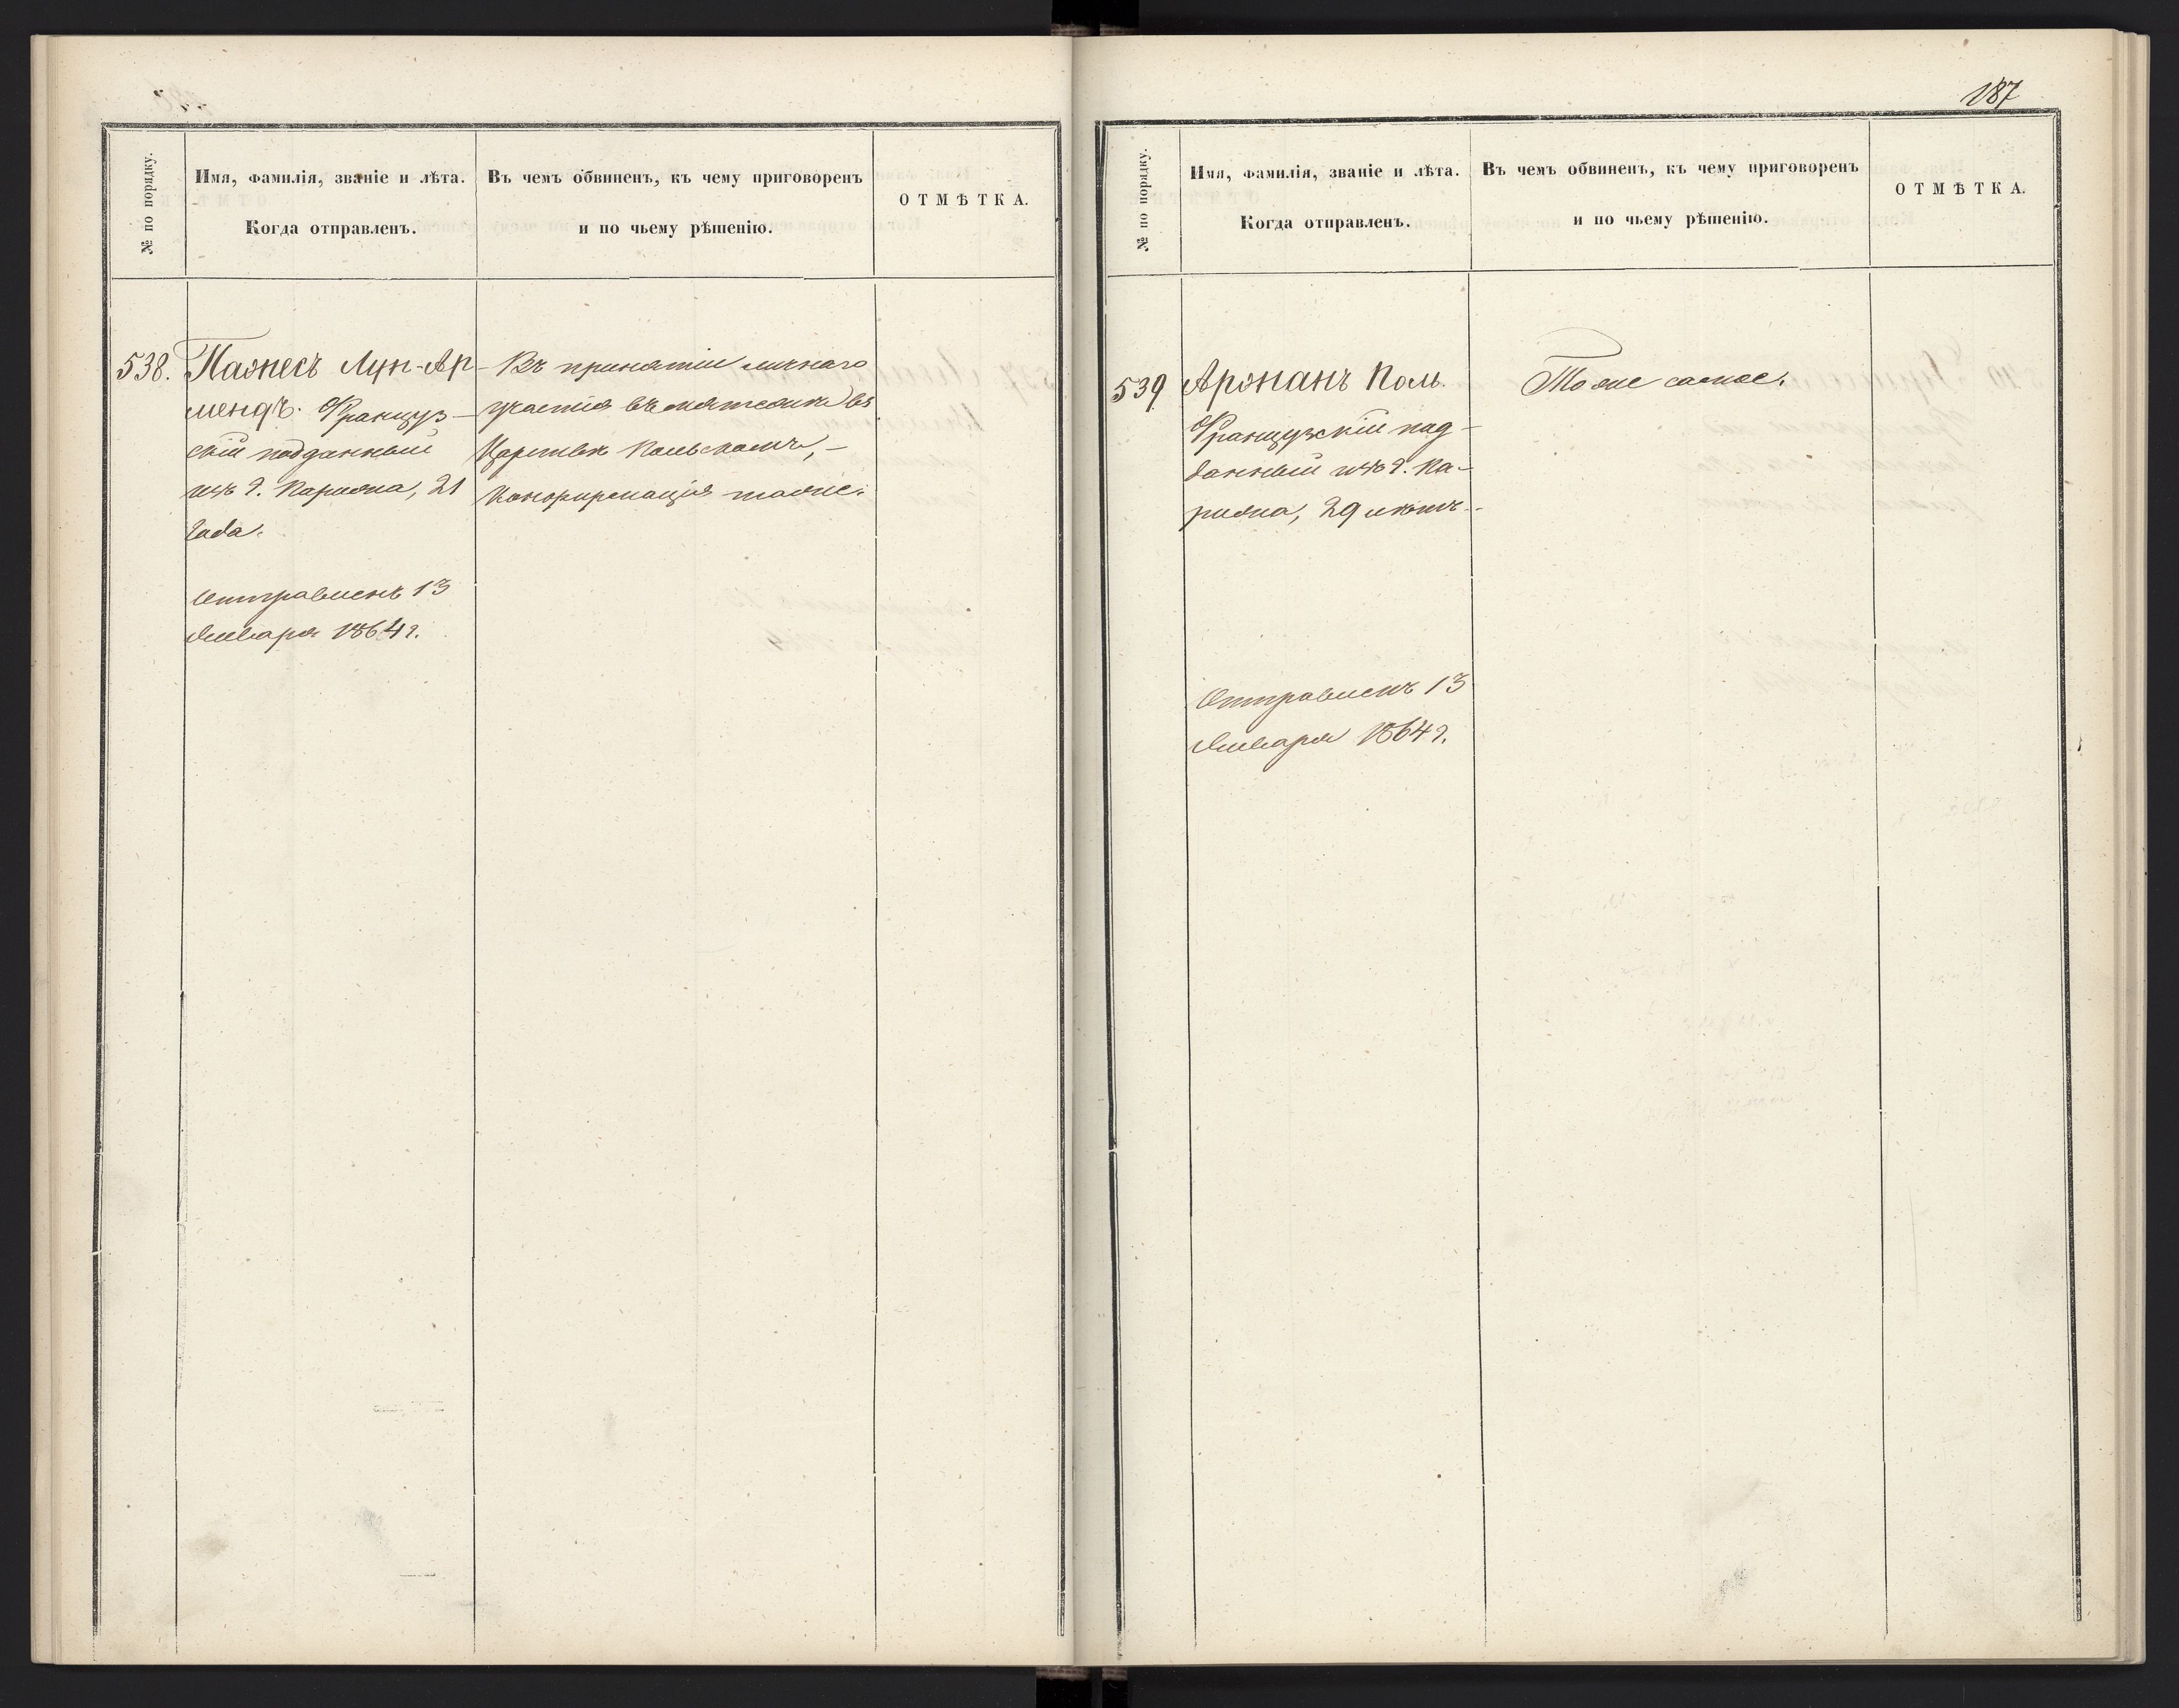 № по порядку.
Имя, фамилія, званіе и лѣта.
Когда отправленъ.
Въ чемъ обвиненъ, къ чему приговоренъ
и по чьему рѣшенію.
ОТМѢТКА.
538.
Пажесъ Луи-Ар-
мендъ. Француз-
скій подданный
изъ г. Парижа, 21
года.
Отправленъ 13
Января 1864 г.
Въ принятіи личнаго
участія въ мятежѣ въ
Царствѣ Польскомъ, –
Конфирмація тоже.
187
№ по порядку.
Имя, фамилія, званіе и лѣта.
Когда отправленъ.
Въ чемъ обвиненъ, къ чему приговоренъ
и по чьему рѣшенію.
ОТМѢТКА.
539
Аржанъ Поль.
Французскій под-
данный изъ г. Па-
рижа, 29 лѣтъ.
Отправленъ 13
Января 1864 г.
Тоже самое.